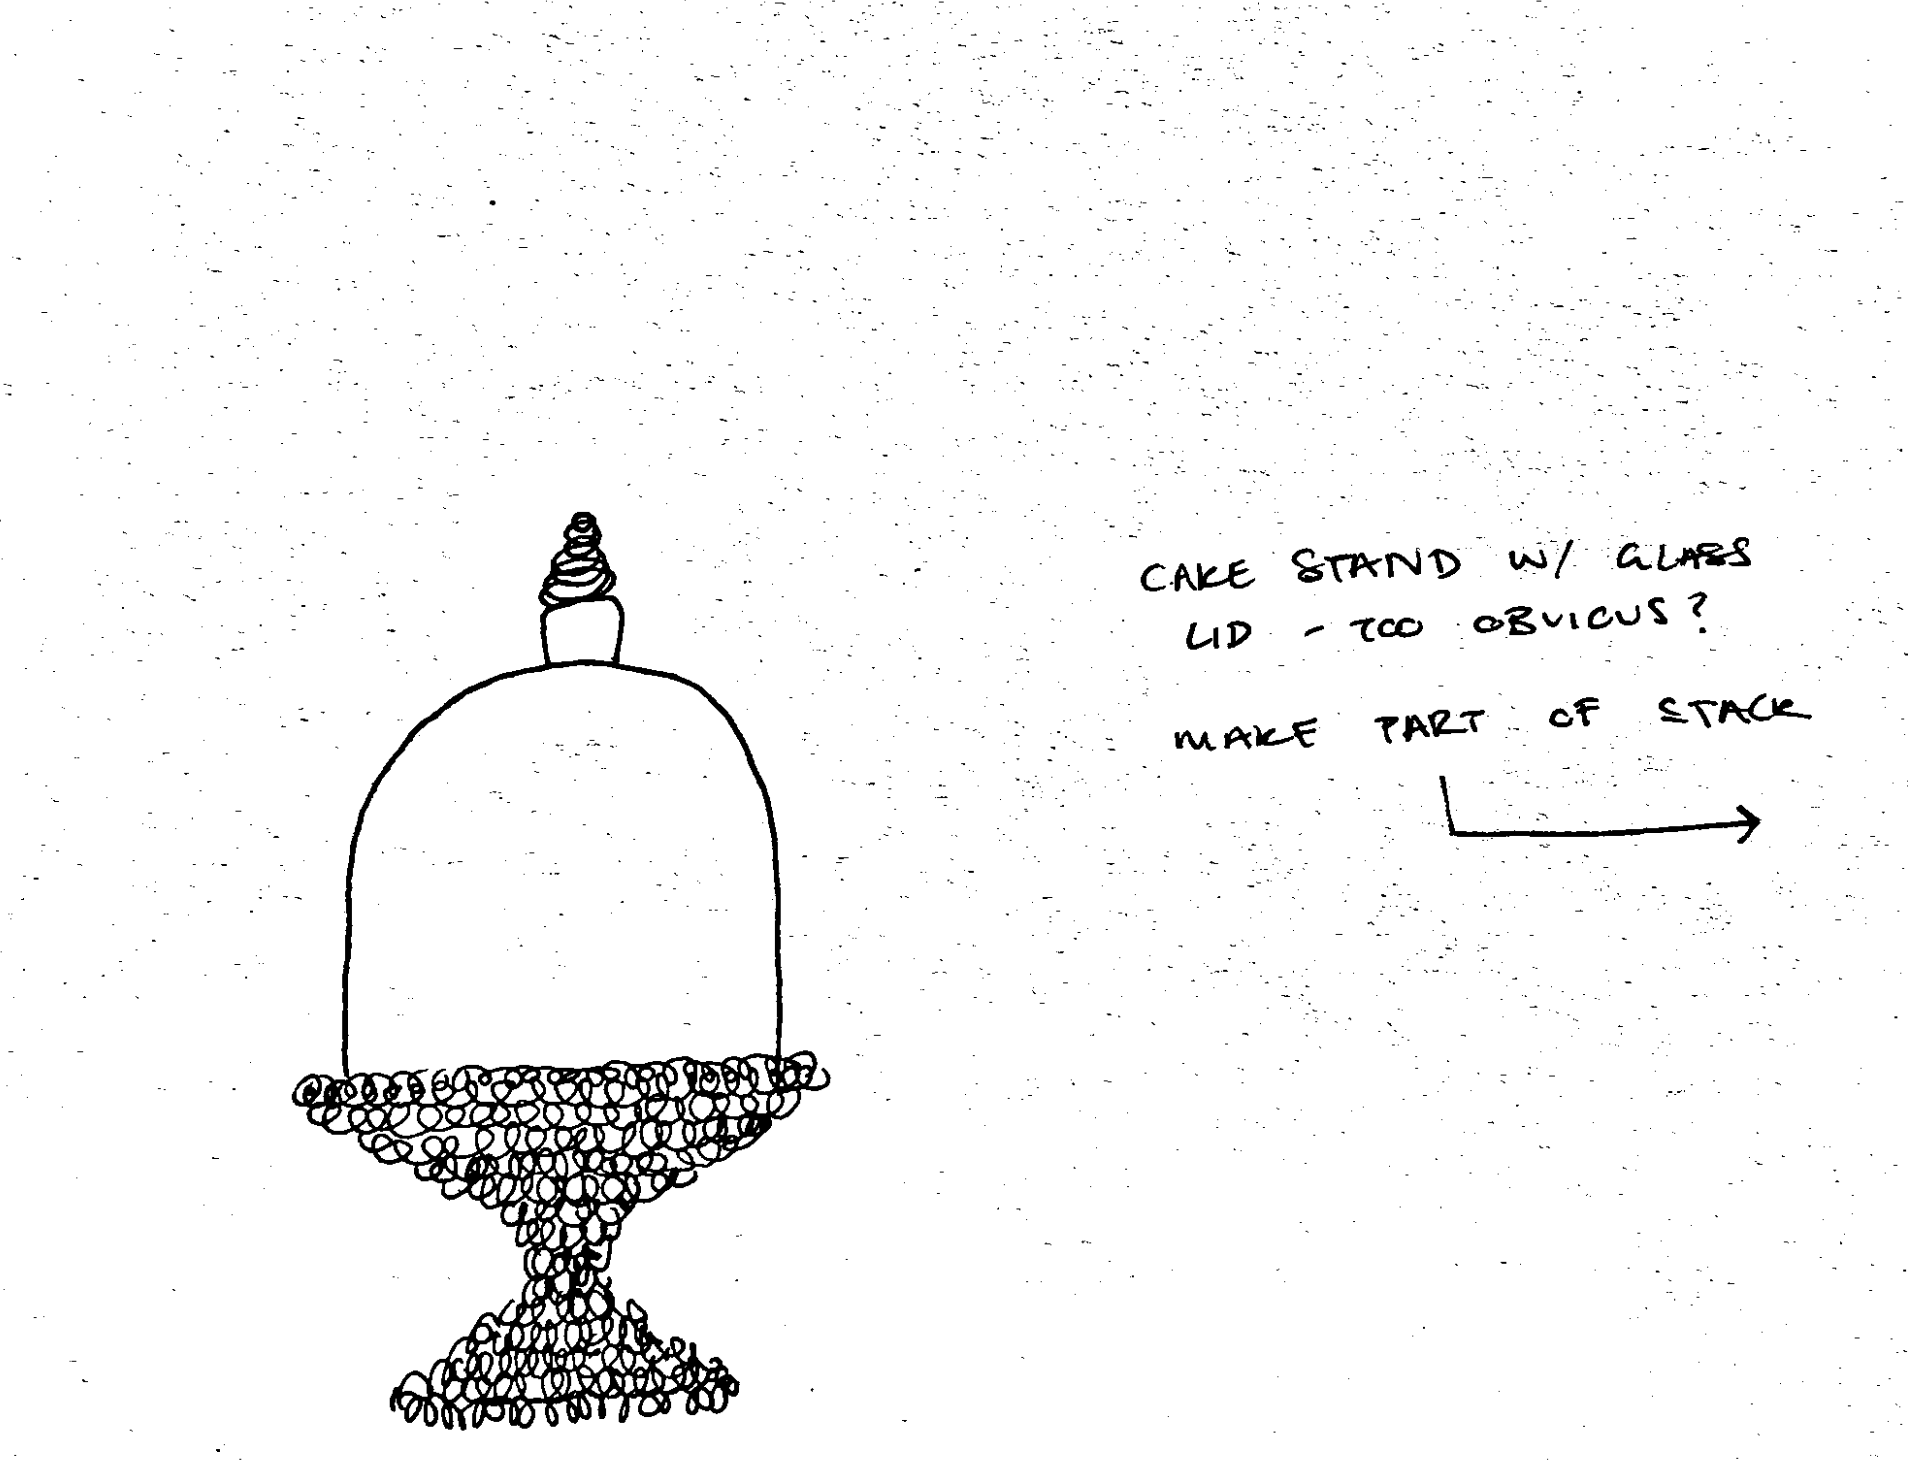 CAKE STAND W/ GLASS
LID - TOO OBVIOUS?
MAKE PART OF STACK